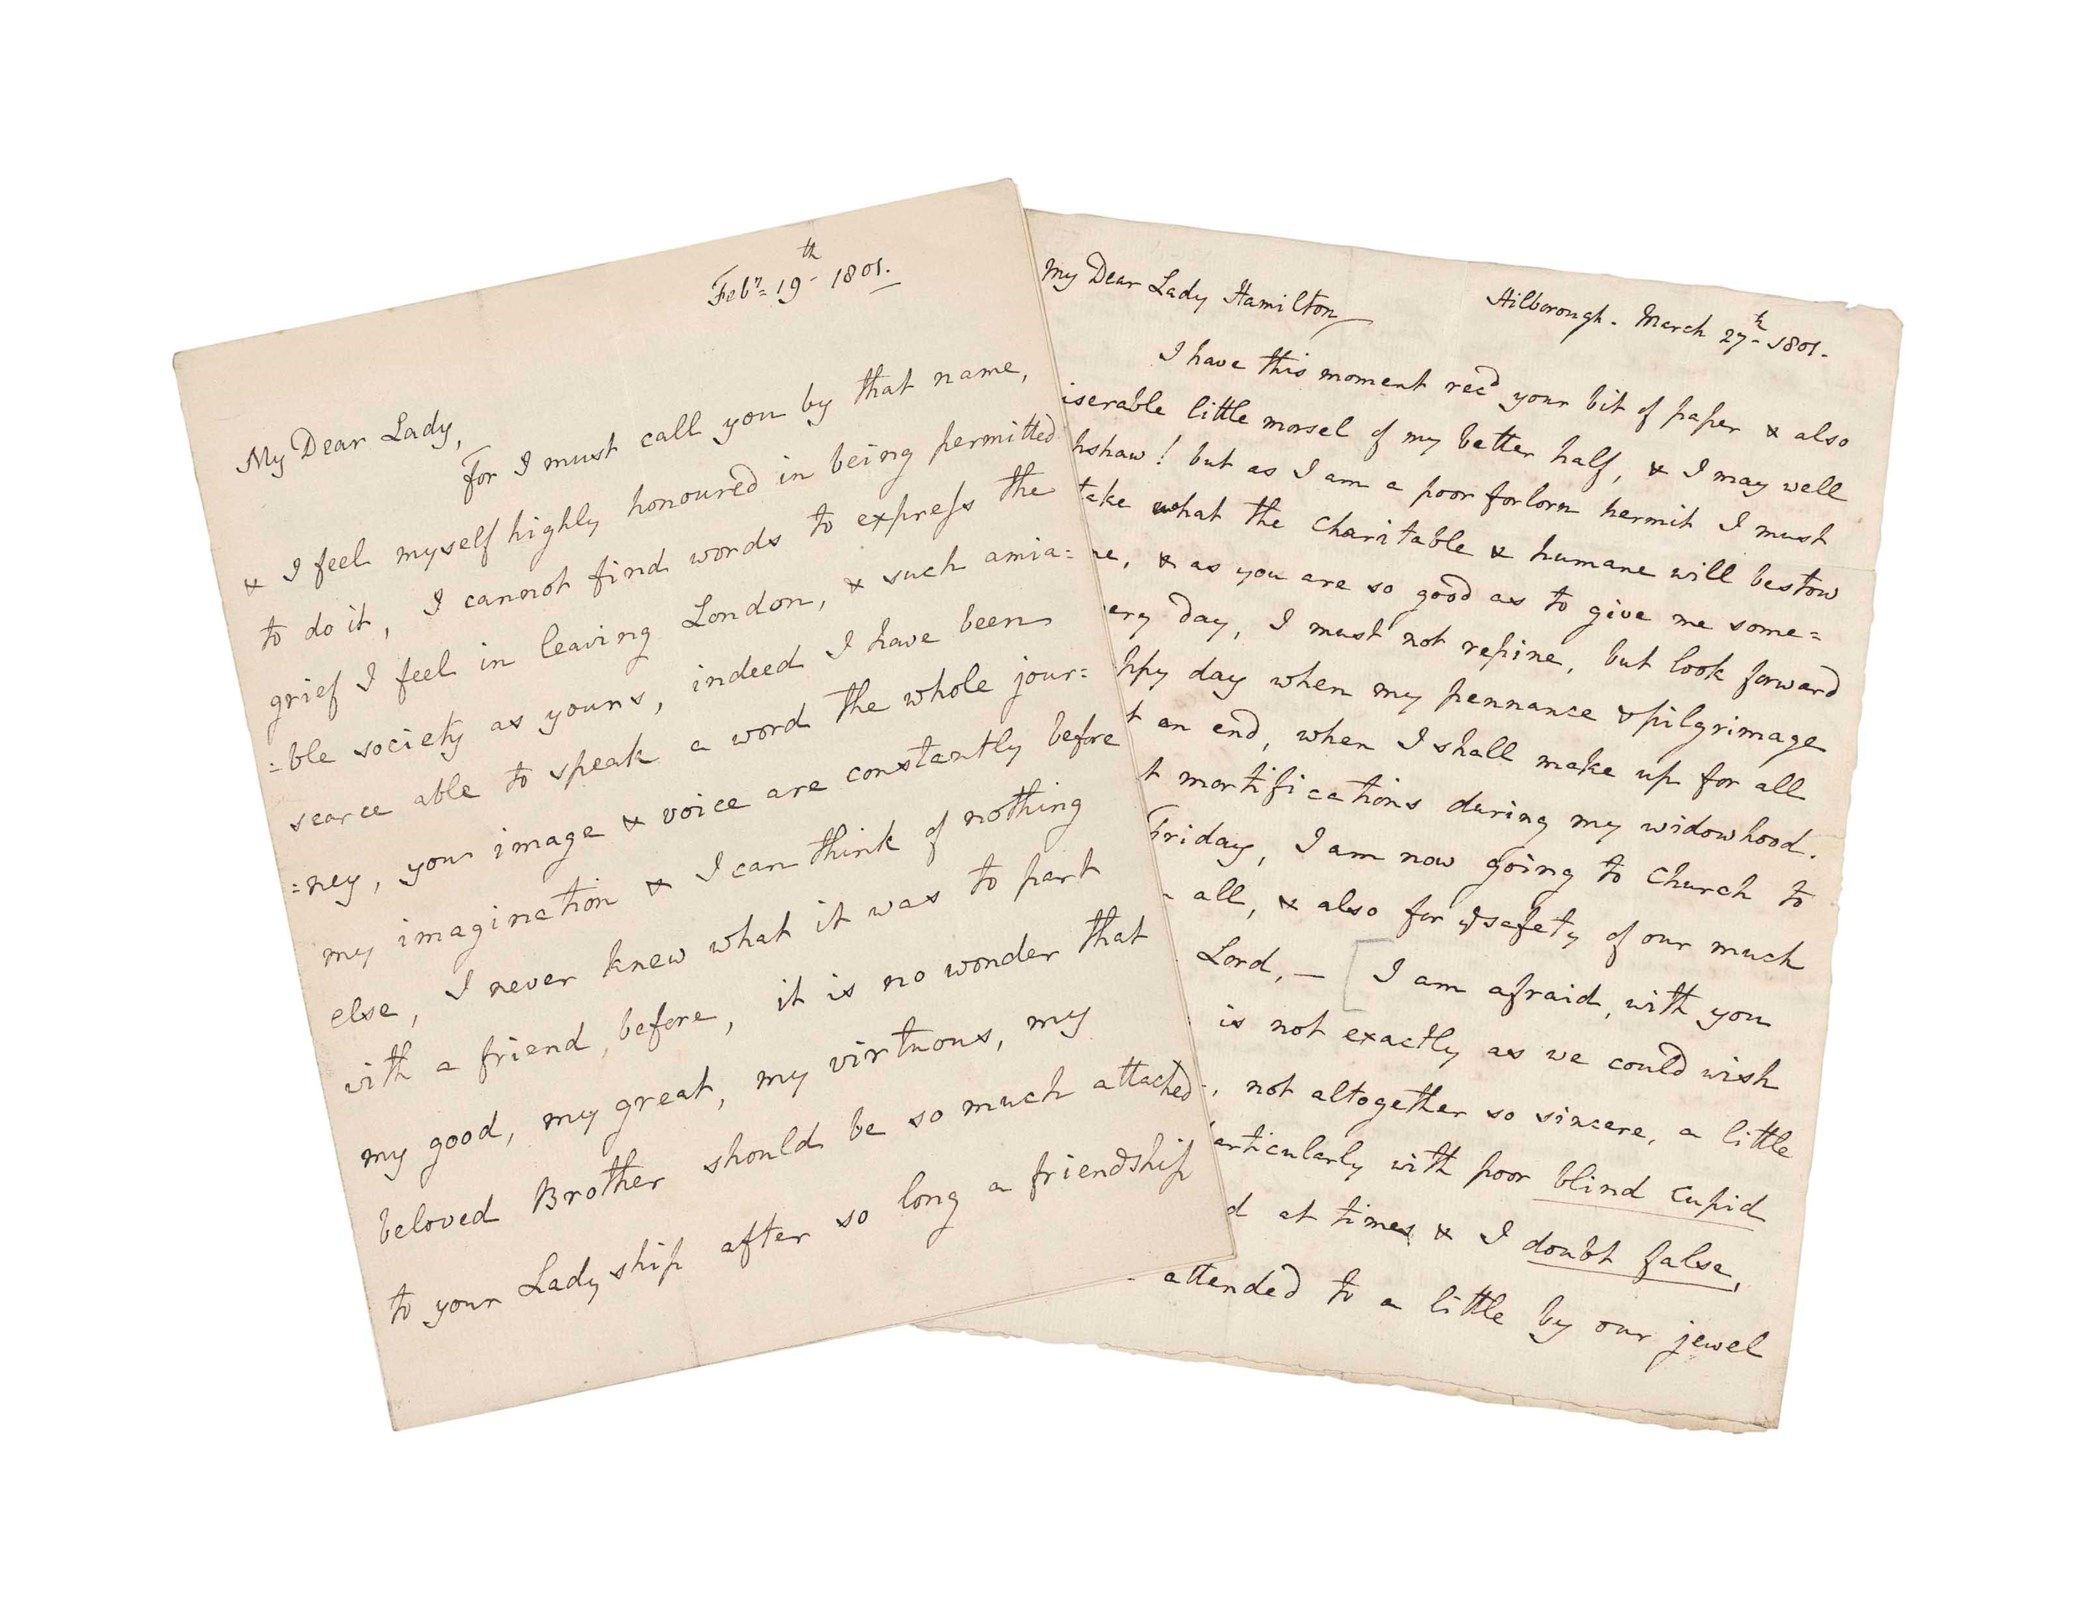 Feby= 19th- 1801.
My Dear Lady,
For I must call you by that name,
& I feel myself highly honoured in being permitted
to do it, I cannot find words to express the
grief I feel in leaving London, & such amia=
=ble society as yours, indeed I have been
scarce able to speak a word the whole jour=
=ney, your image & voice are constantly before
my imagination & I can think of nothing
else, I never knew what it was to part
with a friend before, it is no wonder that
my good, my great, my virtuous, my
beloved Brother should be so much attached
to your Ladyship after so long a friendship
My Dear Lady Hamilton
Hilborough. March 27th- 1801.
I have this moment recd your bit of paper & also
iserable little morsel of my better half, & I may well
hshaw! but as I am a poor forlorn hermit I must
take what the charitable & humane will bestow
ne, & as you are so good as to give me some=
ery day, I must not repine, but look forward
ppy day when my pennance & pilgrimage
t an end, when I shall make up for all
t mortifications during my widowhood.
Friday, I am now going to church to
all, & also for ye safety of our much
Lord,— [ I am afraid, with you
is not exactly as we could wish
, not altogether so sincere, a little
articularly with poor blind Cupid
d at times & I doubt false,
attended to a little by our jewel